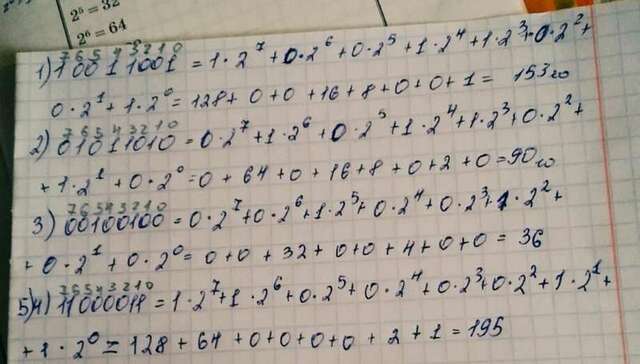 2⁵ = 32
2⁶ = 64
7 6 5 4 3 2 1 0
1) 10011001 = 1·2⁷ + 0·2⁶ + 0·2⁵ + 1·2⁴ + 1·2³ + 0·2² +
0·2¹ + 1·2⁰ = 128 + 0 + 0 + 16 + 8 + 0 + 0 + 1 = 153₁₀
7 6 5 4 3 2 1 0
2) 01011010 = 0·2⁷ + 1·2⁶ + 0·2⁵ + 1·2⁴ + 1·2³ + 0·2² +
+ 1·2¹ + 0·2⁰ = 0 + 64 + 0 + 16 + 8 + 0 + 2 + 0 = 90₁₀
7 6 5 4 3 2 1 0
3) 00100100 = 0·2⁷ + 0·2⁶ + 1·2⁵ + 0·2⁴ + 0·2³ + 1·2² +
+ 0·2¹ + 0·2⁰ = 0 + 0 + 32 + 0 + 0 + 4 + 0 + 0 = 36
7 6 5 4 3 2 1 0
5)4) 11000011 = 1·2⁷ + 1·2⁶ + 0·2⁵ + 0·2⁴ + 0·2³ + 0·2² + 1·2¹ +
+ 1·2⁰ = 128 + 64 + 0 + 0 + 0 + 0 + 2 + 1 = 195